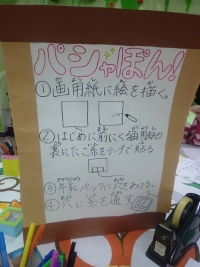 パシャぽん!
①画用紙に絵を描く。
②はじめに前にく画用紙の
裏にたこ糸をテープで貼る
③牛乳パックに穴をあける。
④穴に糸を通す